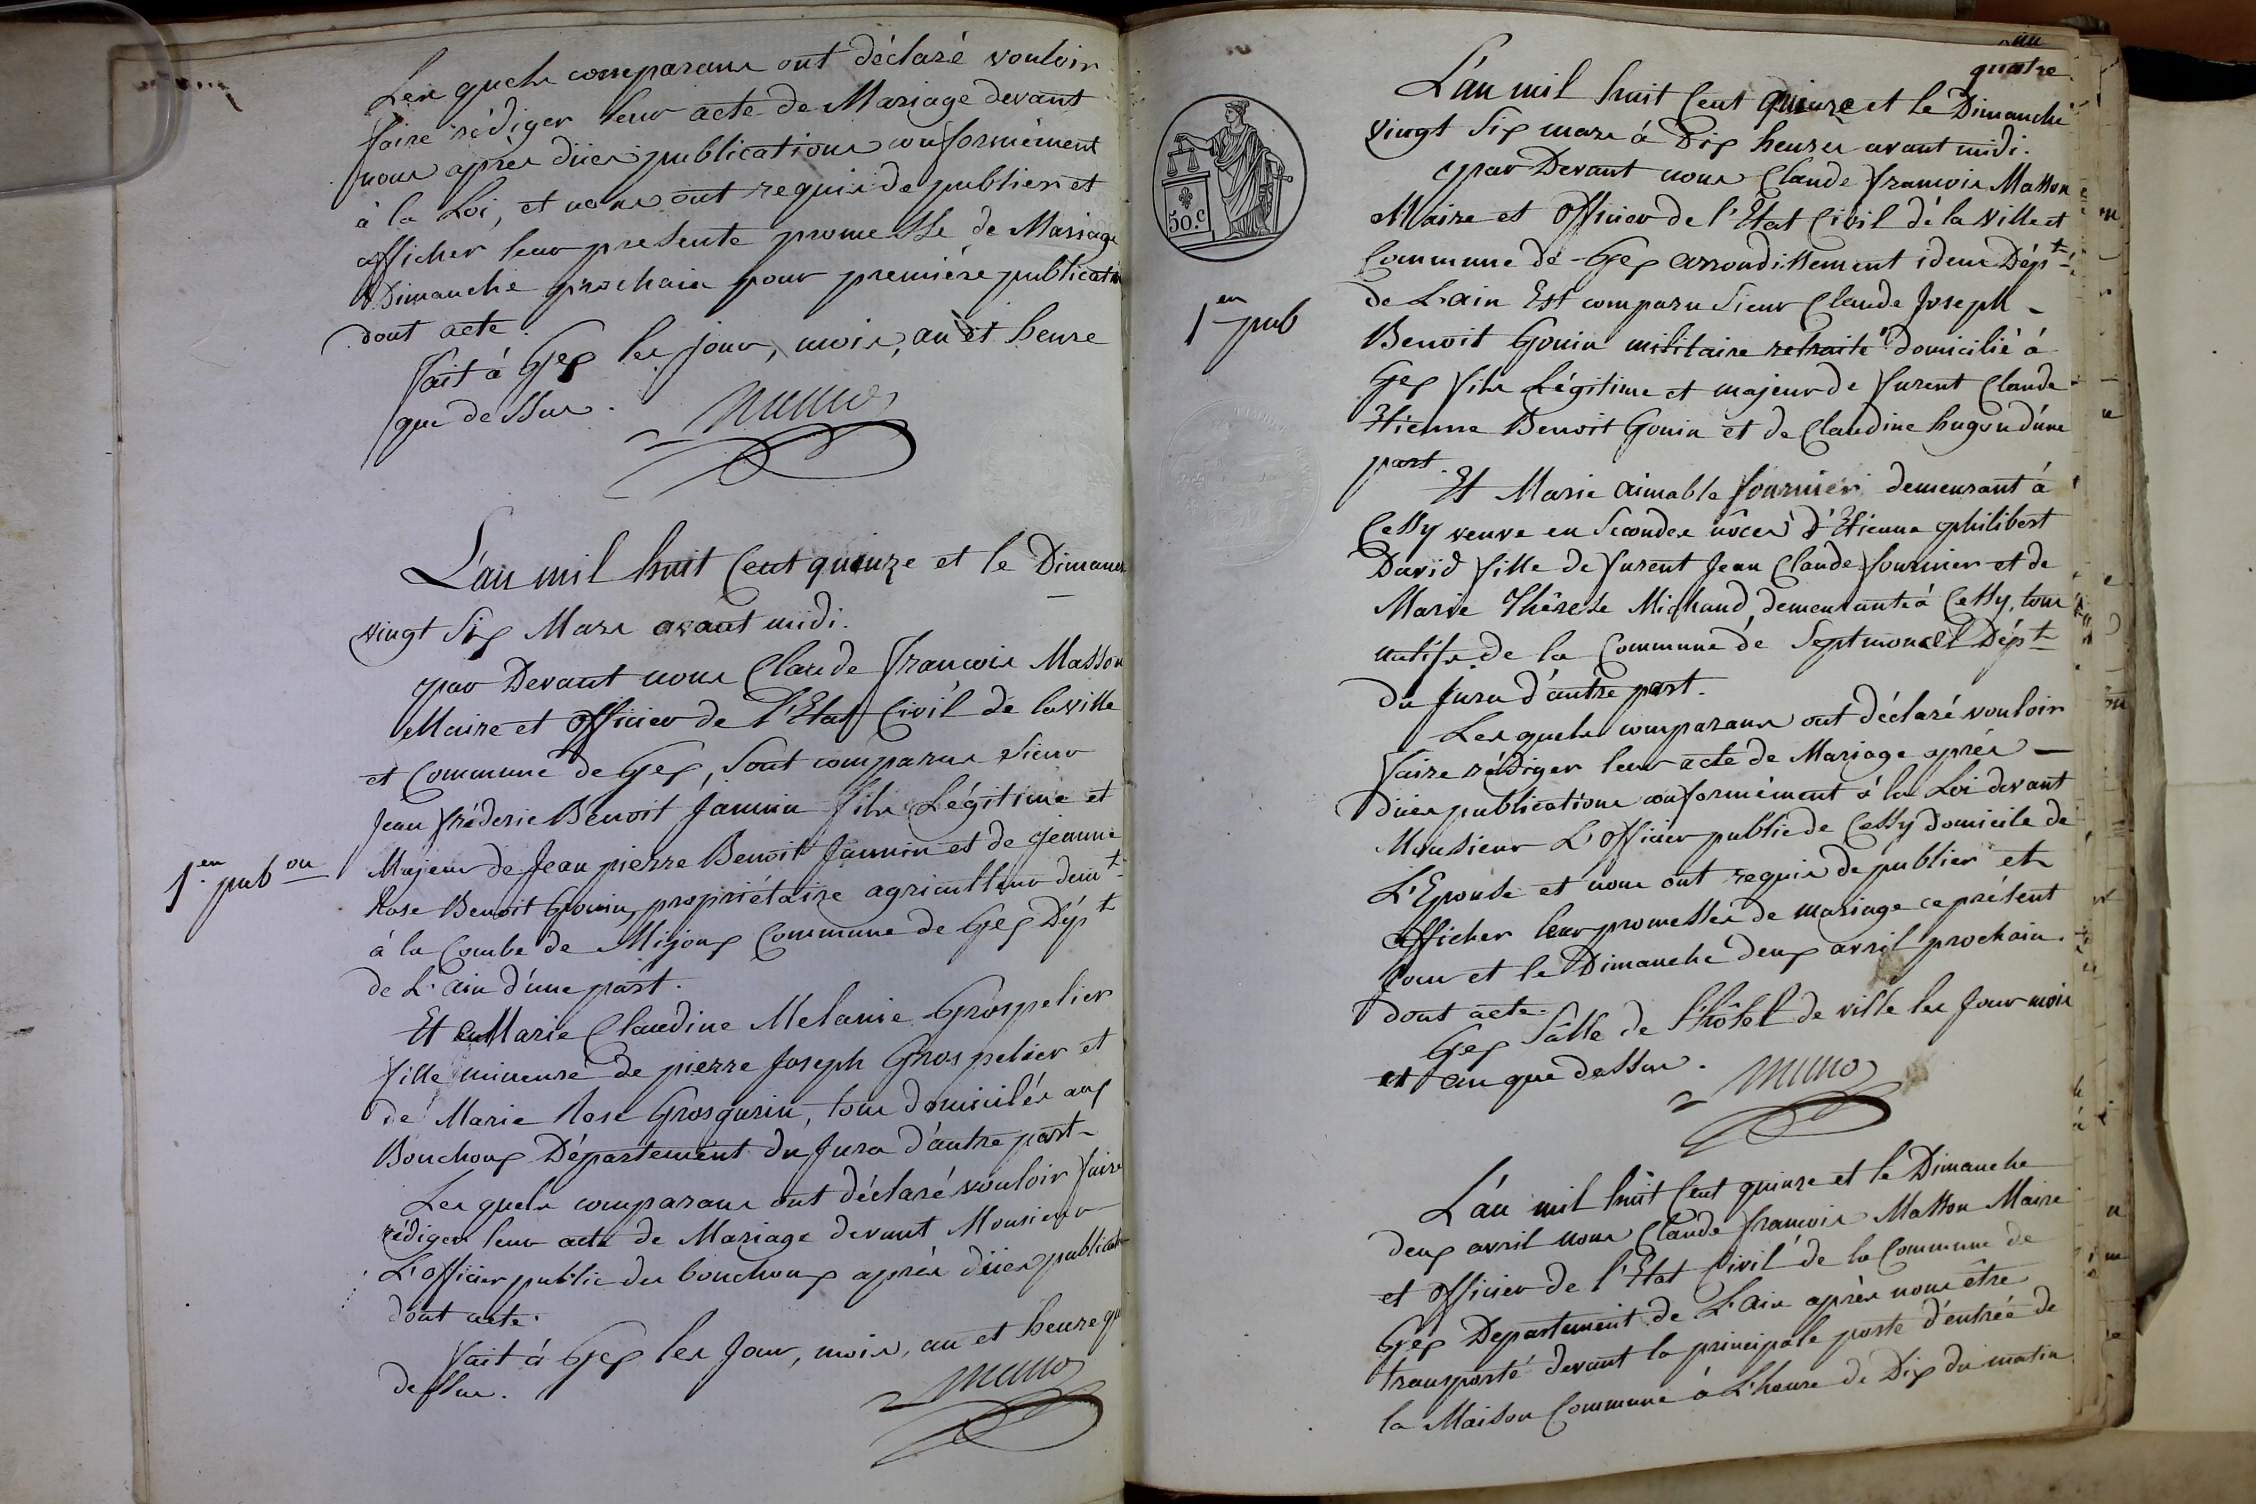 Les quels comparans ont déclaré vouloir
faire rédiger leur acte de Mariage devant
nous après dües publications conformément
à la Loi, et nous ont requis de publier et
afficher leur presente promesse de Mariage
Dimanche prochain pour première publication
dont acte.
fait à Gex les jour, mois, an et heure
que dessus.
L'an mil huit Cent quinze et le Dimanche
vingt Six Mars avant midi.
par Devant nous Claude françois Masson
Maire et officier de l'Etat Civil de la ville
et Commune de Gex, Sont comparus Sieur
Jean fréderic Benoit Jannin fils Légitime et
1.en pub.on
Majeur de Jean pierre Benoit Jannin et de Jeanne
Rose Benoit Gonin, propriétaire agriculteur dem.t
à la Combe de Mijoux Commune de Gex Dép.t
de L'ain d'une part.
Et Marie Claudine Melanie Grospelier
fille mineure de pierre Joseph Grospelier et
de Marie Rose Grosgurin, tous domiciliés aux
Bouchoux Département du Jura d'autre part
Les quels comparans ont déclaré vouloir faire
rédiger leur acte de Mariage devant Monsieur
L'officier public des bouchoux après dües publicat
dont acte.
fait à Gex les Jour, mois, an et heure que
dessus.
quatre
L'an mil huit Cent quinze et le Dimanche
vingt Six mars à Dix heures avant midi.
par Devant nous Claude françois Masson
Maire et officier de l'Etat Civil de la ville et
Commune de Gex arrondissement idem Dép.t
50.c
1.en pub
de L'ain Est comparu Sieur Claude Joseph
Benoit Gonin militaire retraité domicilié à
Gex fils Légitime et majeur de furent Claude
Etienne Benoit Gonin et de Claudine hugon d'une
part.
Et Marie aimable fournier demeurant à
Cessy veuve en Secondes nôces d'Etienne philibert
David fille de furent Jean Claude fournier et de
Marie Thérèse Michaud, demeurante à Cessy, tous
natifs de la Commune de Septmoncel Dép.t
du Jura d'autre part.
Les quels comparans ont déclaré vouloir
faire rédiger leur acte de Mariage après
dües publications conformément à la Loi devant
Monsieur L'officier public de Cessy domicile de
L'Epouse et nous ont requis de publier et
afficher leur promesses de mariage ce présent
Jour et le Dimanche deux avril prochain.
dont acte.
Gex Salle de l'hôtel de ville les Jour mois
et an que dessus.
L'an mil huit Cent quinze et le Dimanche
deux avril nous Claude françois Masson Maire
et officier de l'Etat Civil de la Commune de
Gex Departement de L'ain après nous être
transporté devant la principale porte d'entrée de
la Maison Commune à L'heure de Dix du matin